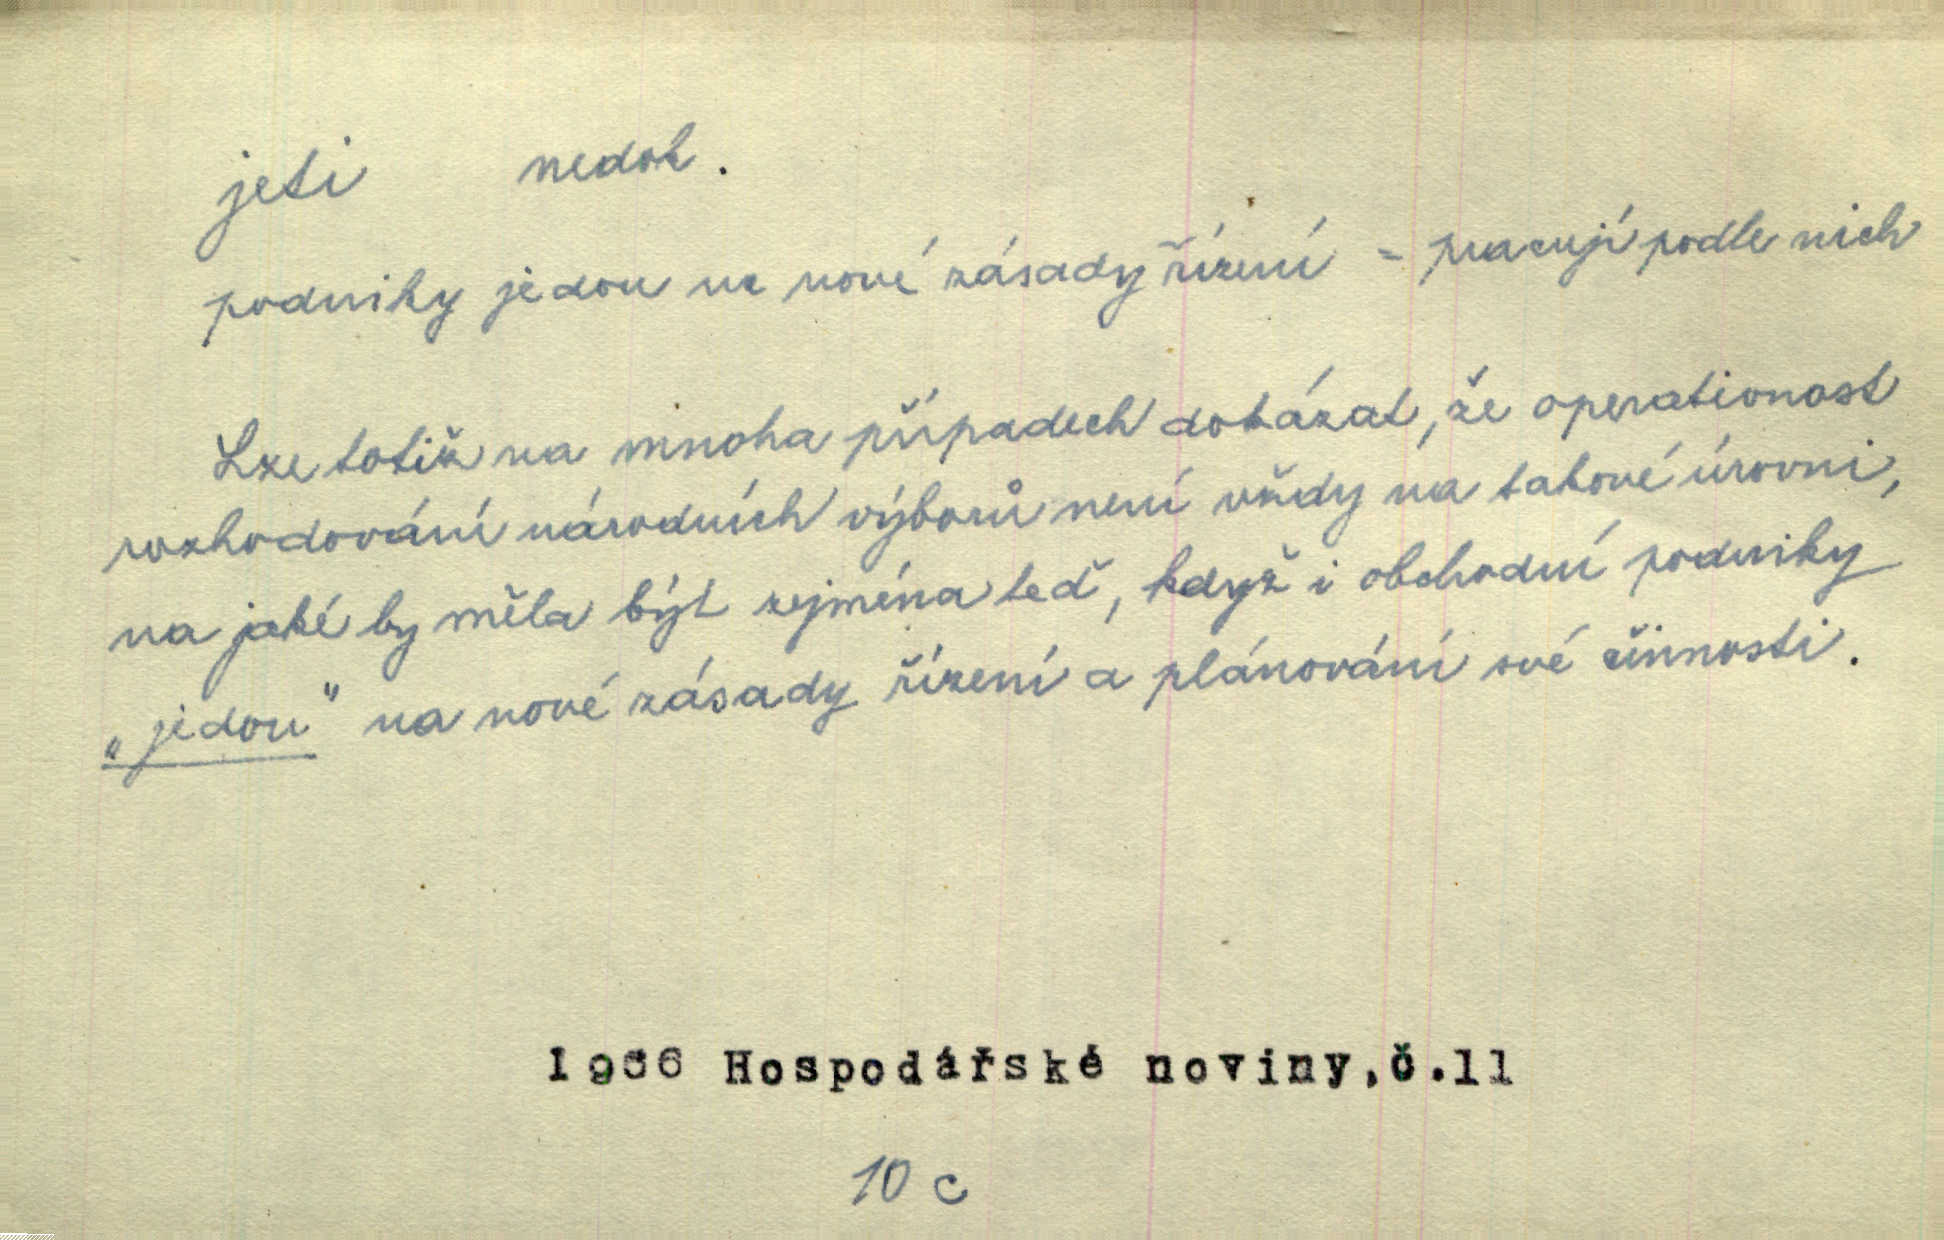 jeti nedok.
podniky jedou na nové zásady řízení = pracují podle nich
Lze totiž na mnoha případech dokázat, že operationost
rozhodování národních výborů není vždy na takové úrovni,
na jaké by měla být zejména teď, když i obchodní podniky
„jedou" na nové zásady řízení a plánování své činnosti.
1966 Hospodářské noviny,č.11
10 c